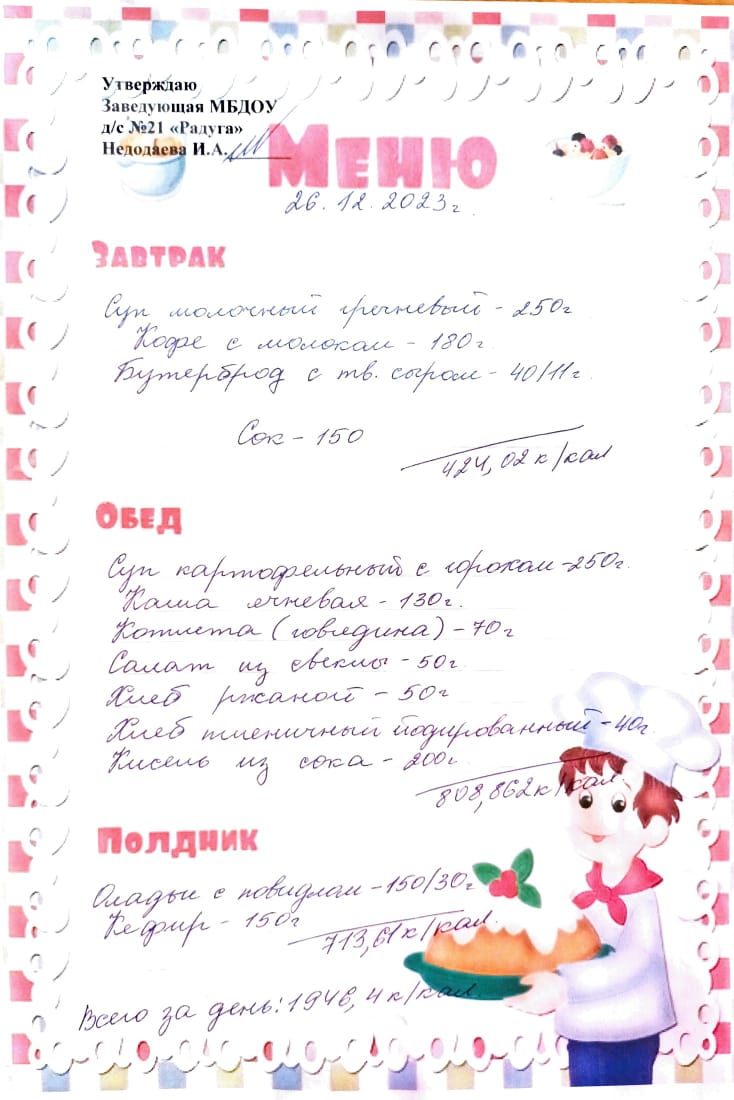 Утверждаю
Заведующая МБДОУ
д/с №21 «Радуга»
Недодаева И.А.
Меню
26.12.2023г.
Завтрак
Суп молочный гречневый - 250г
Кофе с молоком - 180г.
Бутерброд с тв. сыром - 40/11г.
Сок - 150
424,02 к/кал
Обед
Суп картофельный с горохом - 250г.
Каша ячневая - 130г.
Котлета (говядина) - 70г
Салат из свеклы - 50г.
Хлеб ржаной - 50г
Хлеб пшеничный йодированный - 40г.
Кисель из сока - 200г.
808,862 к/кал.
Полдник
Оладьи с повидлом - 150/30г
Кефир - 150г
713,61 к/кал.
Всего за день: 1946,4 к/кал.